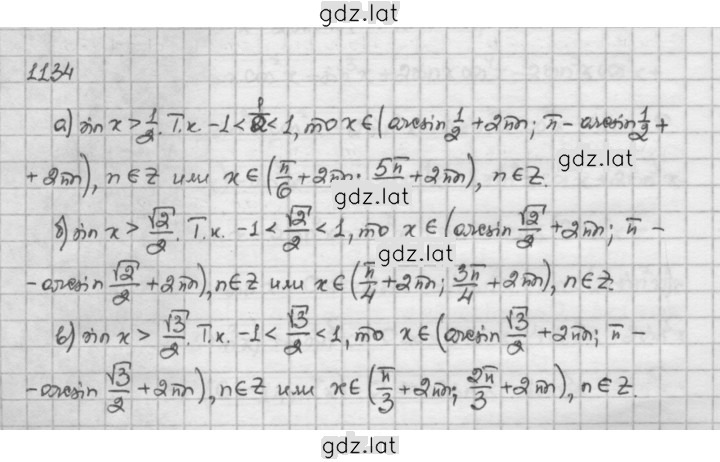 gdz.lat
1134
а) sin x > 1/2. Т.к. -1 < 1/2 < 1, то x ∈ (arcsin 1/2 + 2πn; π - arcsin 1/2 +
+ 2πn), n ∈ Z или x ∈ (π/6 + 2πn; 5π/6 + 2πn), n ∈ Z.
gdz.lat
gdz.lat
б) sin x > √2/2. Т.к. -1 < √2/2 < 1, то x ∈ (arcsin √2/2 + 2πn; π -
gdz.lat
- arcsin √2/2 + 2πn), n ∈ Z или x ∈ (π/4 + 2πn; 3π/4 + 2πn), n ∈ Z.
в) sin x > √3/2. Т.к. -1 < √3/2 < 1, то x ∈ (arcsin √3/2 + 2πn; π -
- arcsin √3/2 + 2πn), n ∈ Z или x ∈ (π/3 + 2πn; 2π/3 + 2πn), n ∈ Z.
gdz.lat